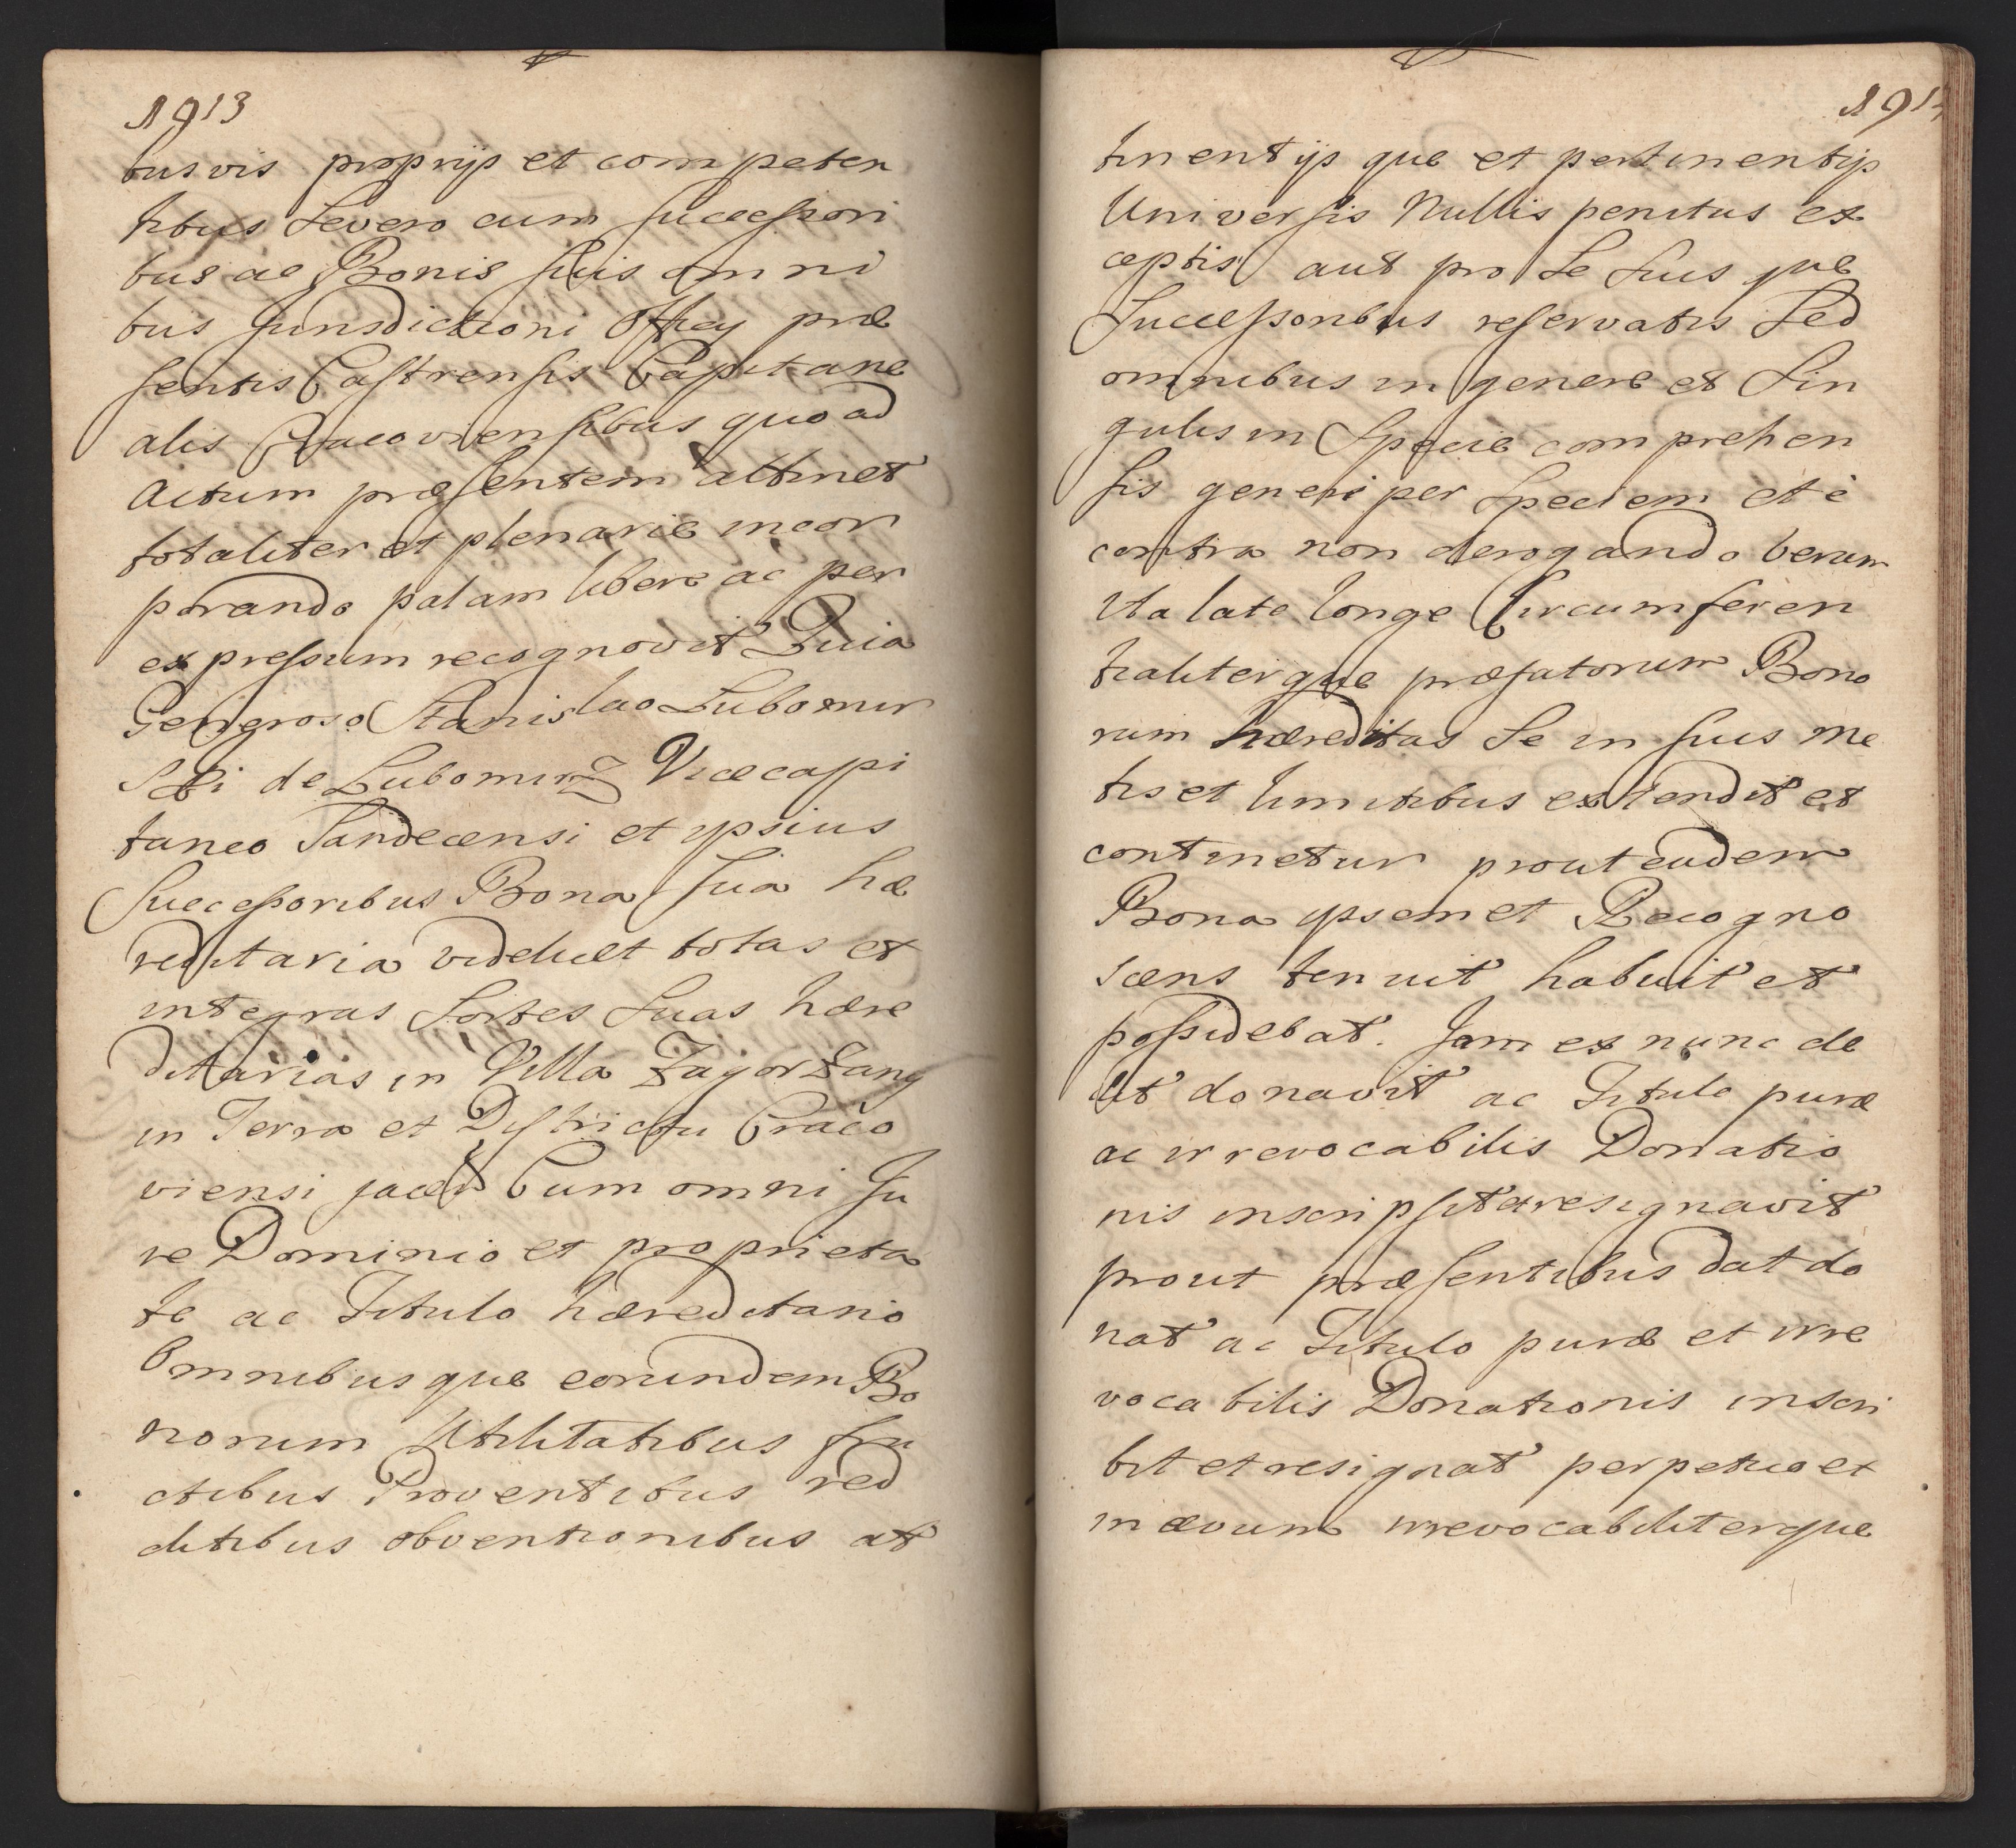 1913
busvis proprijs et competen
tibus Se vero cum successori
bus ac Bonis suis omni
bus Jurisdictioni Officij præ
sentis Castrensis Capitane
alis Cracoviensibus quo ad
Actum præsentem attinet
totaliter et plenarie incor
porando palam libere ac per
expressum recognovit Quia
Generoso Stanislao Lubomir
ski de Lubomirz Vicecapi
taneo Sandecensi et ipsius
Successoribus Bona sua hæ
reditaria videlicet totas et
integras Sortes Suas hære
ditarias in Villa Zagorzany
in Terra et Districtu Craco
viensi jacen Cum omni Ju
re Dominio et proprieta
te ac Titulo hæreditario
Omnibusque eorundem Bo
norum Utilitatibus fru
ctibus Proventibus red
ditibus obventionibus at
tinentijs que et pertinentijs
Universis Nullis penitus ex
ceptis aut pro Se Suis que
Successoribus reservatis Sed
omnibus in genere et Sin
gulis in Specie comprehen
sis generi per Speciem et è
contra non derogando verum
Ita late longe Circumferen
tialiterque præfatorum Bono
rum hæreditas Se in suis me
tis et limitibus extendit et
continetur prout eadem
Bona ipsemet Recogno
scens tenuit habuit et
possidebat. Jam ex nunc de
dit donavit ac Titulo puræ
ac irrevocabilis Donatio
nis inscripsit et resignavit
prout præsentibus dat do
nat ac Titulo puræ et irre
vocabilis Donationis inscri
bit et resignat perpetuo et
in ævum irrevocabiliterque